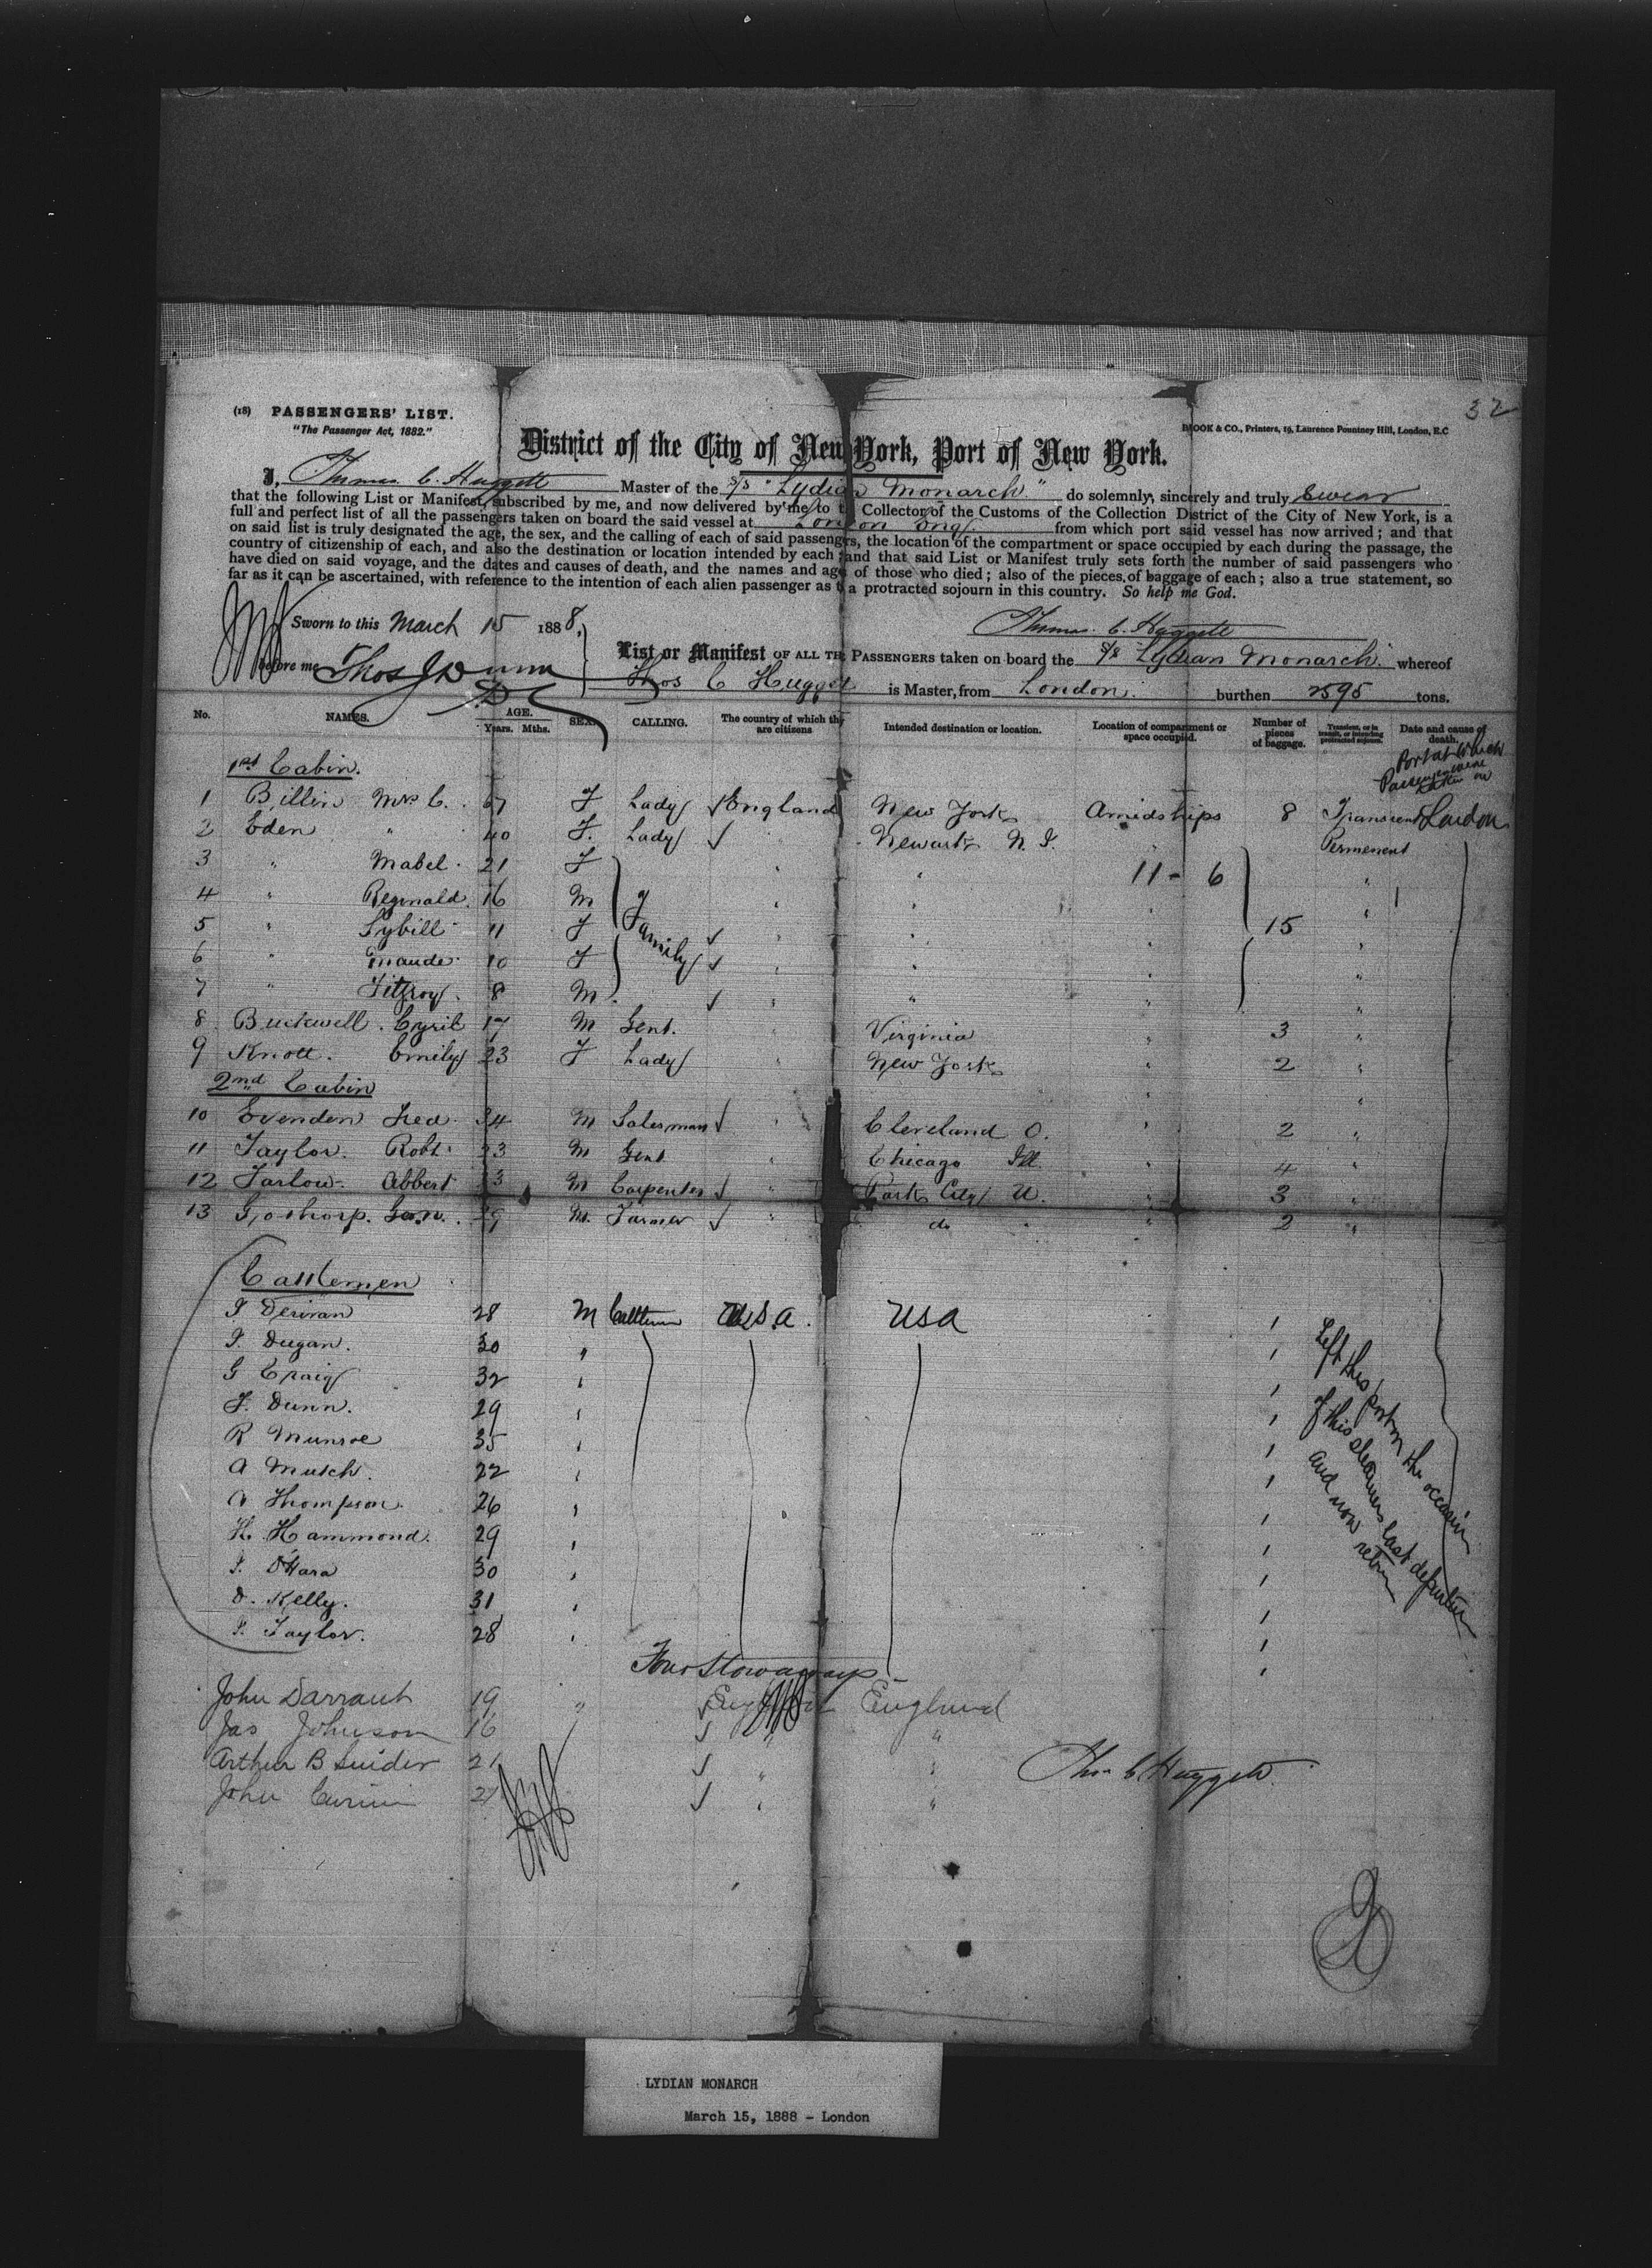 32
(18) PASSENGERS' LIST.
"The Passenger Act, 1882."
BROOK & CO., Printers, 19, Laurence Pountney Hill, London, E.C
District of the City of New York, Port of New York.
I, Thomas C. Huggett Master of the S/S "Lydian Monarch" do solemnly, sincerely and truly Swear
that the following List or Manifest, subscribed by me, and now delivered by me to the Collector of the Customs of the Collection District of the City of New York, is a
full and perfect list of all the passengers taken on board the said vessel at London Eng. from which port said vessel has now arrived; and that
on said list is truly designated the age, the sex, and the calling of each of said passengers, the location of the compartment or space occupied by each during the passage, the
country of citizenship of each, and also the destination or location intended by each; and that said List or Manifest truly sets forth the number of said passengers who
have died on said voyage, and the dates and causes of death, and the names and ages of those who died; also of the pieces of baggage of each; also a true statement, so
far as it can be ascertained, with reference to the intention of each alien passenger as to a protracted sojourn in this country. So help me God.
Sworn to this March 15 1888, Thomas C. Huggett
before me Thos J Dunn
List or Manifest OF ALL THE PASSENGERS taken on board the S/S Lydian Monarch whereof
Thos C Huggett is Master, from London. burthen 2595 tons.
No. NAMES. AGE. Years. Mths. SEX. CALLING. The country of which they are citizens Intended destination or location. Location of compartment or space occupied. Number of pieces of baggage. Transient, or in transit, or intending protracted sojourn. Date and cause of death.
Port at which Passengers were taken on
1st Cabin.
1 Billin Mrs C. 67 F Lady England New York Amidships 8 Transcent London
2 Eden " 40 F. Lady " Newark N.J. " Permenent
3 " Mabel 21 F " " 11 - 6 "
4 " Reginald 16 M " " " "
5 " Sybill 11 F Family " " " 15 "
6 " Maude 10 F " " " "
7 " Fitzroy 8 M. " " " "
8 Buckwell. Cyril 17 M Gent. " Virginia " 3 "
9 Knott. Emily 23 F Lady " New York " 2 "
2nd Cabin
10 Evenden Fred 34 M Salesman " Cleveland O. " 2 "
11 Taylor. Robt. 23 M Gent " Chicago Ill " 4 "
12 Tarlow. Abbert 33 M Carpenter " Park City U. " 3 "
13 Gosthorp. Geo. 29 M. Farmer " do " 2 "
Cattlemen
Derivan 28 M Cattlemen U.S.A. USA 1
Dugan. 30 " 1
G Craig 32 " 1
Dunn. 29 " 1
R Munroe 35 " 1
A Mutch. 22 " 1
Thompson. 26 " 1
H. Hammond. 29 " 1
O'Hara 30 " 1
D. Kelly. 31 " 1
Taylor. 28 " 1
Left this port on the occasion
of this steamers last departure
and now return
Four Stowaways
John Darrant 19 " England
Jas Johnson 16 " "
Arthur B Snider 21 " "
John 27 " "
Thos C Huggett.
LYDIAN MONARCH
March 15, 1888 - London